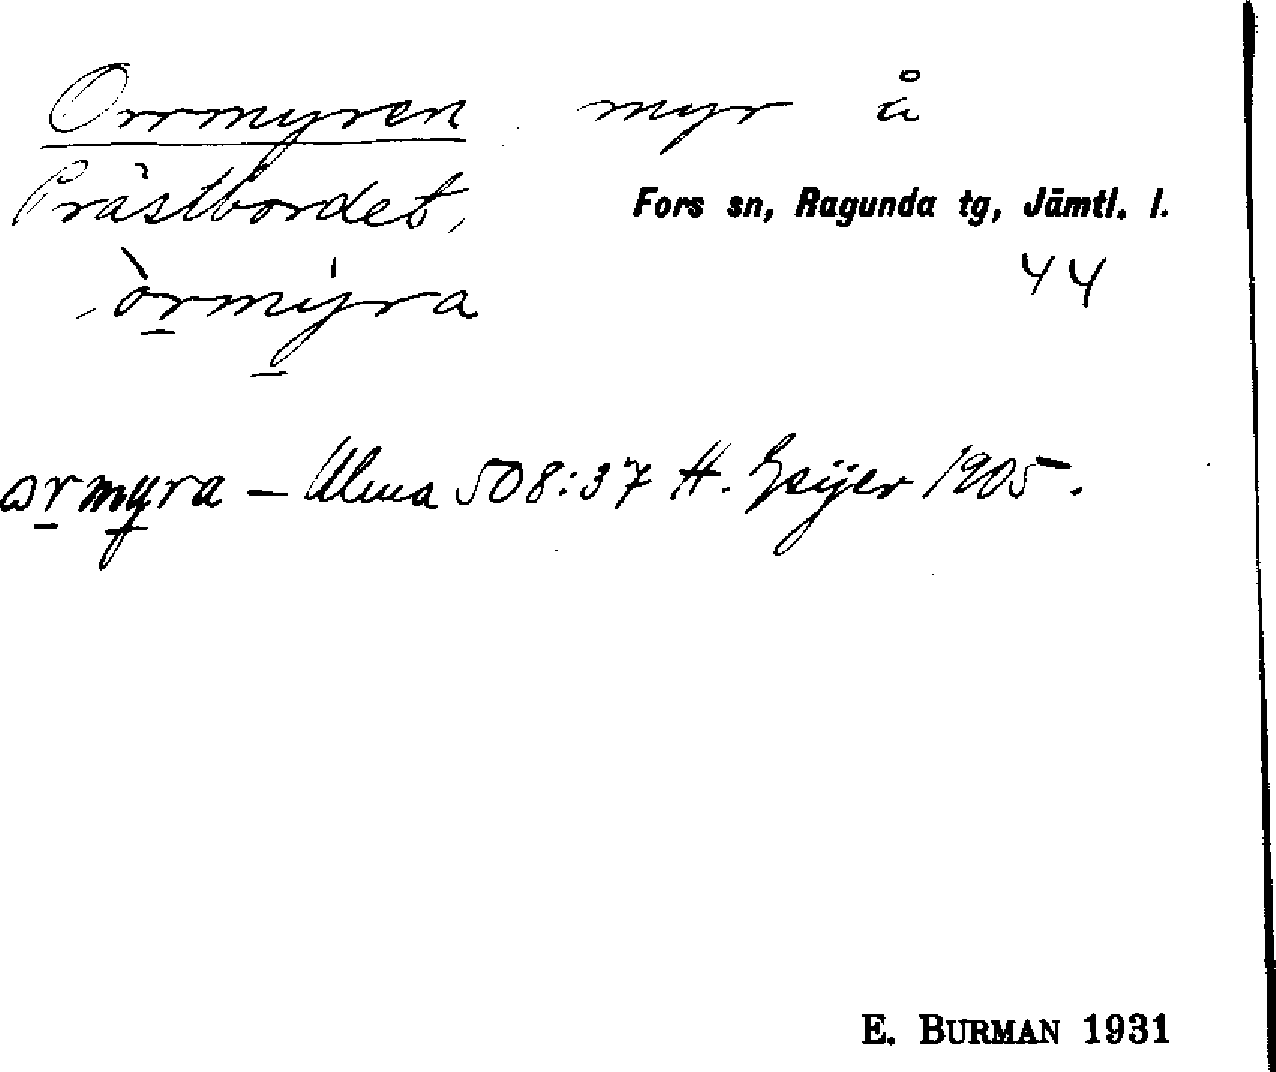 Orrmyren myr å
Prästbordet,
Fors sn, Ragunda tg, Jämtl. l.
òrmýra 44
ormyra – Ulma 508:37 H. Geijer 1905.
E. BURMAN 1931